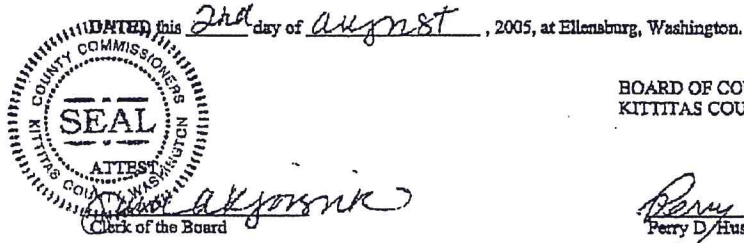 DATED this 2nd day of August, 2005, at Ellensburg, Washington.
COUNTY COMMISSIONERS
KITTITAS COUNTY, WASHINGTON
SEAL
BOARD OF COU
KITTITAS COU
ATTEST
Clerk of the Board
Perry
Perry D. Hus